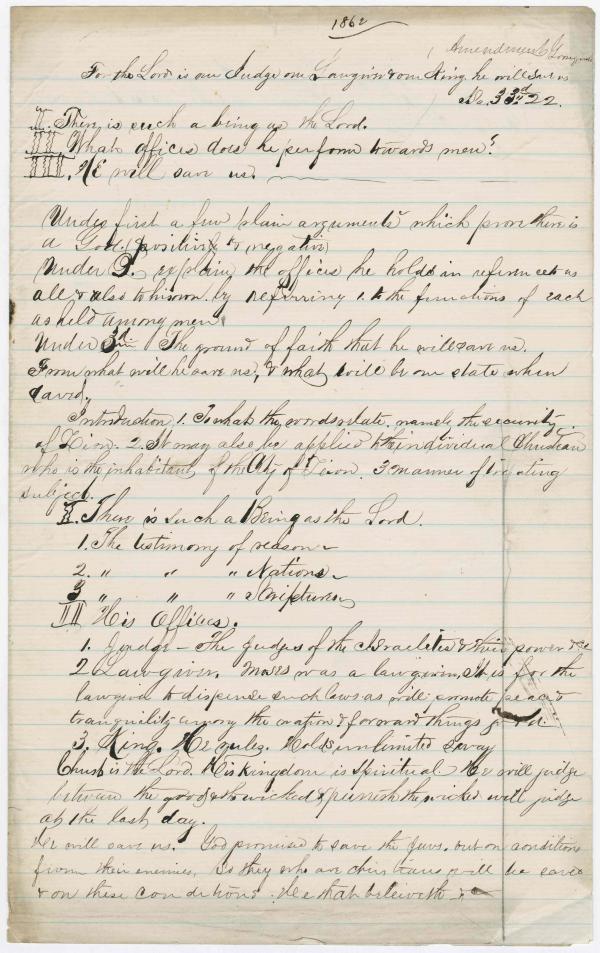 1862
Amendment
For the Lord is our Judge our Lawgiver & our King he will save us
Is. 33rd 22.
I. There is such a being as the Lord.
II. What offices does he perform towards men?
III. HE will save us.
Under first a few plain arguments which prove there is
a God. (positive & negative)
Under 2. explain the offices he holds in reference to us
all & also to his own by referring 1. to the functions of each
as held among men
Under 3d The ground of faith that he will save us.
From what will he save us, & what will be our state when
saved.
Introduction 1. To what the words relate, namely the security
of Zion. 2. It may also be applied to the individual Christian
who is the inhabitant of the City of Zion. 3 manner of treating
subject.
I. There is such a Being as the Lord.
1. The testimony of reason
2. " " " Nations
3 " " " Scriptures
II His Offices.
1. Judge - The Judges of the Israelites & their power &c
2 Lawgiver. Moses was a lawgiver. It is for the
lawgiver to dispense such laws as will promote peace &
tranquility among the nation & forward things
3. King. He rules. Holds unlimited sway
Christ is the Lord. His kingdom is spiritual. He will judge
between the good & the wicked & punish the wicked will judge
at the last day.
He will save us. God promised to save the Jews. but on conditions
from their enemies, So they who are christians will be saved
& on these conditions. He that believeth &c